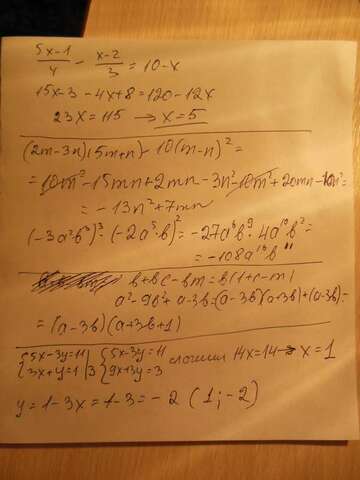 (5x-1)/4 - (x-2)/3 = 10-x
15x-3-4x+8=120-12x
23x=115 → x=5
(2m-3n)(5m+n)-10(m-n)²=
=10m²-15mn+2mn-3n²-10m²+20mn-10n²=
=-13n²+7mn
(-3a²b³)³·(-2a⁵b)²=-27a⁶b⁹·4a¹⁰b²=
=-108a¹⁶b¹¹
b+bc-bm=b(1+c-m)
a²-9b²+a-3b=(a-3b)(a+3b)+(a-3b)=
=(a-3b)(a+3b+1)
{5x-3y=11 {5x-3y=11 сложим 14x=14→x=1
{3x+y=1 |3 {9x+3y=3
y=1-3x=1-3=-2 (1;-2)